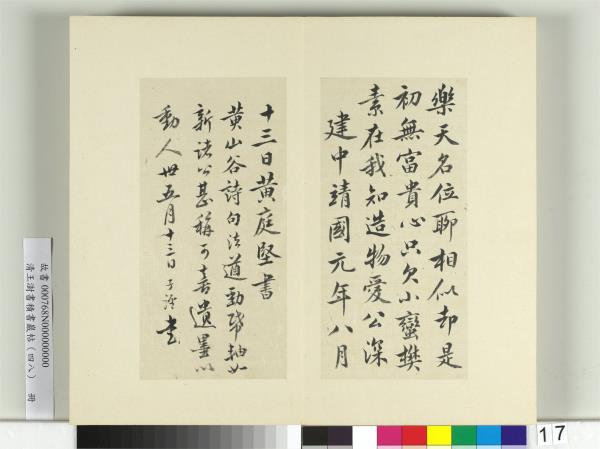 樂天名位聊相似却是
初無富貴心只欠小蠻樊
素在我知造物愛公深
建中靖國元年八月
十三日黃庭堅書
黃山谷詩句法遒勁軸如
新諸公甚稱可喜遺墨
動人 五月十三日 書
故書 000768N000000000
清王澍書積書巖帖(四八) 冊
17